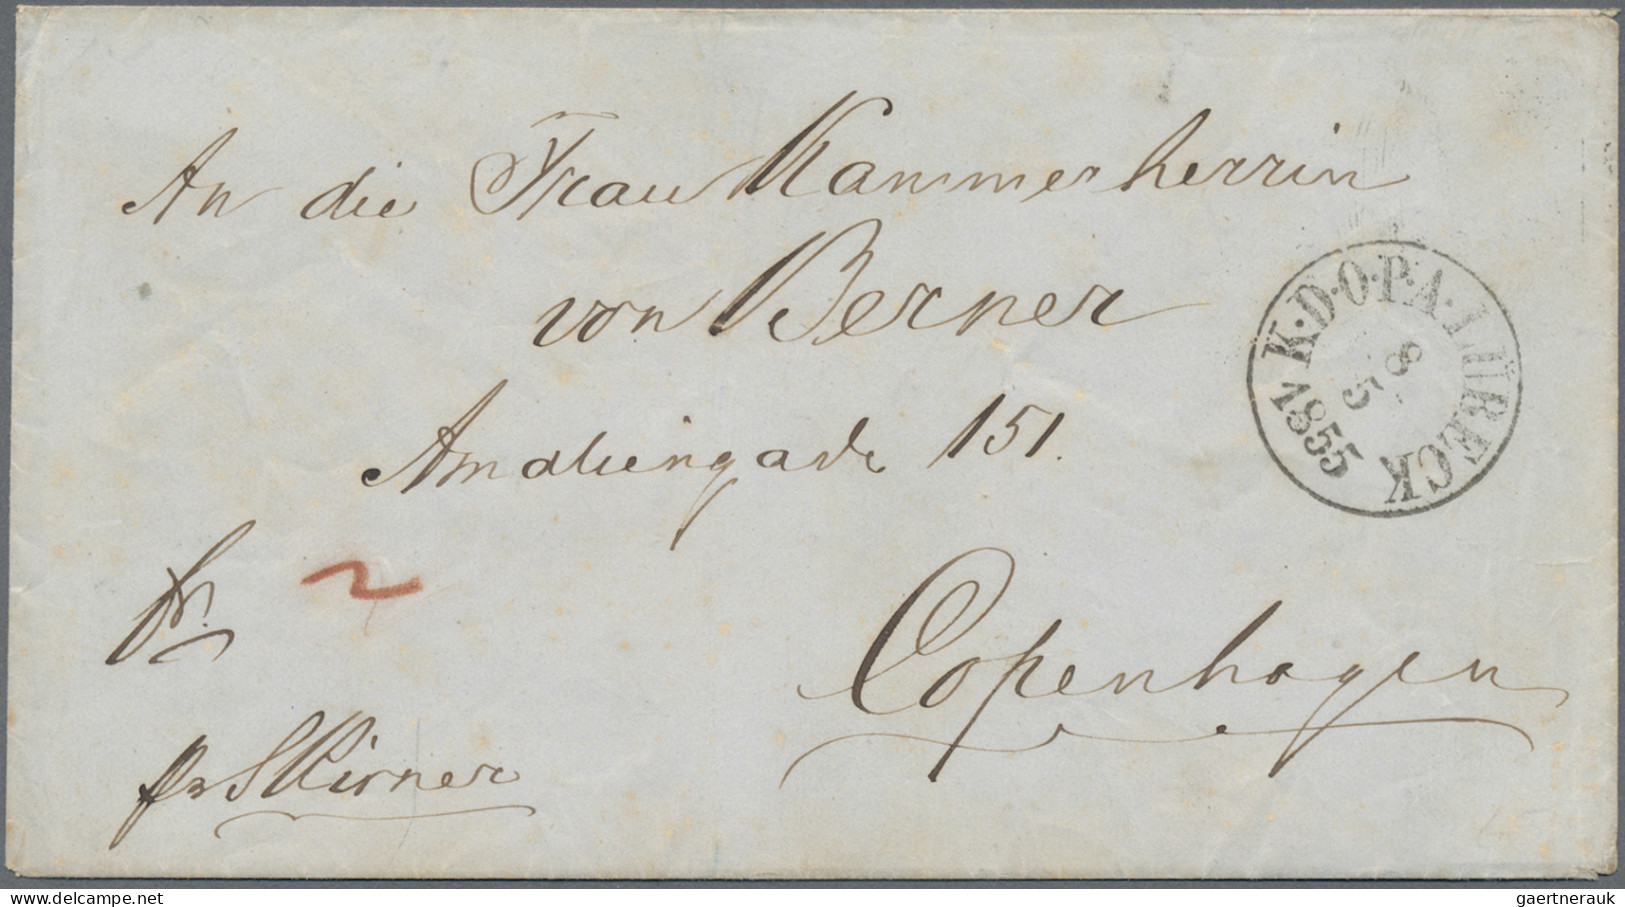 An die Frau Kammerherrin
von Berner
Amaliengade 151.
K·D·O·P·A·LÜBECK
8
5
1855
fr.
2
Copenhagen
pr Skirner
gaertnerauk